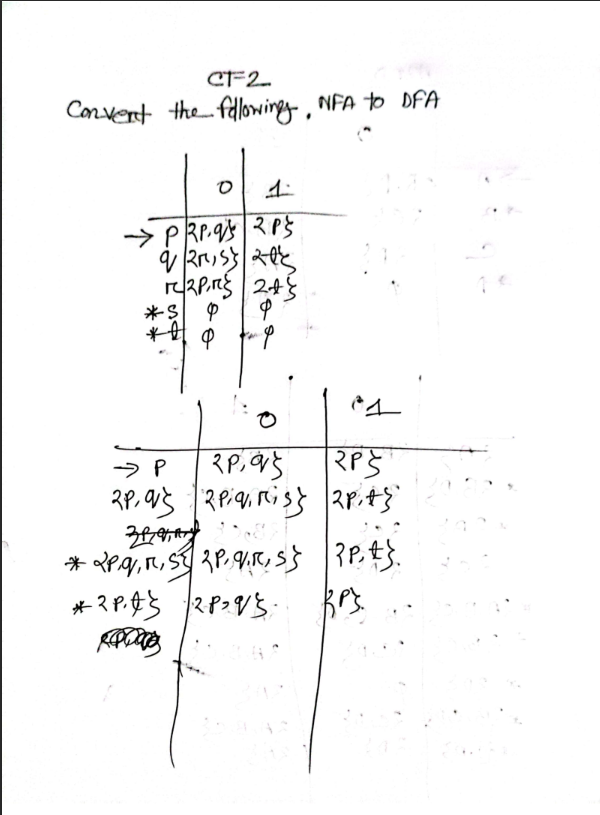 CT-2
Convert the following, NFA to DFA
0 1
→ p {p,q} {p}
q {r,s} {t}
r {p,r} {t}
*s φ φ
*t φ φ
0 1
→ p {p,q} {p}
{p,q} {p,q,r,s} {p,t}
* {p,q,r,s} {p,q,r,s} {p,t}
* {p,t} {p,q} {p}